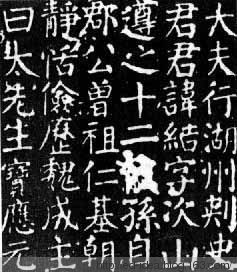 大夫行湖州刾史
君君諱結字次山
遵之十二孫自
郡公曾祖仁基朝
靜恬儉歷魏成主
曰太先生寶應元